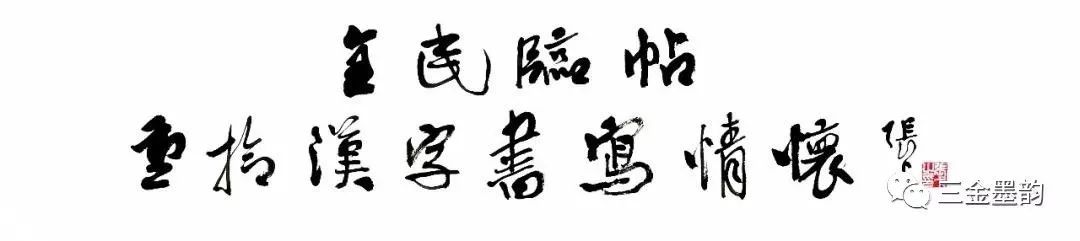 全民臨帖
重拾漢字書寫情懷
三金墨韵